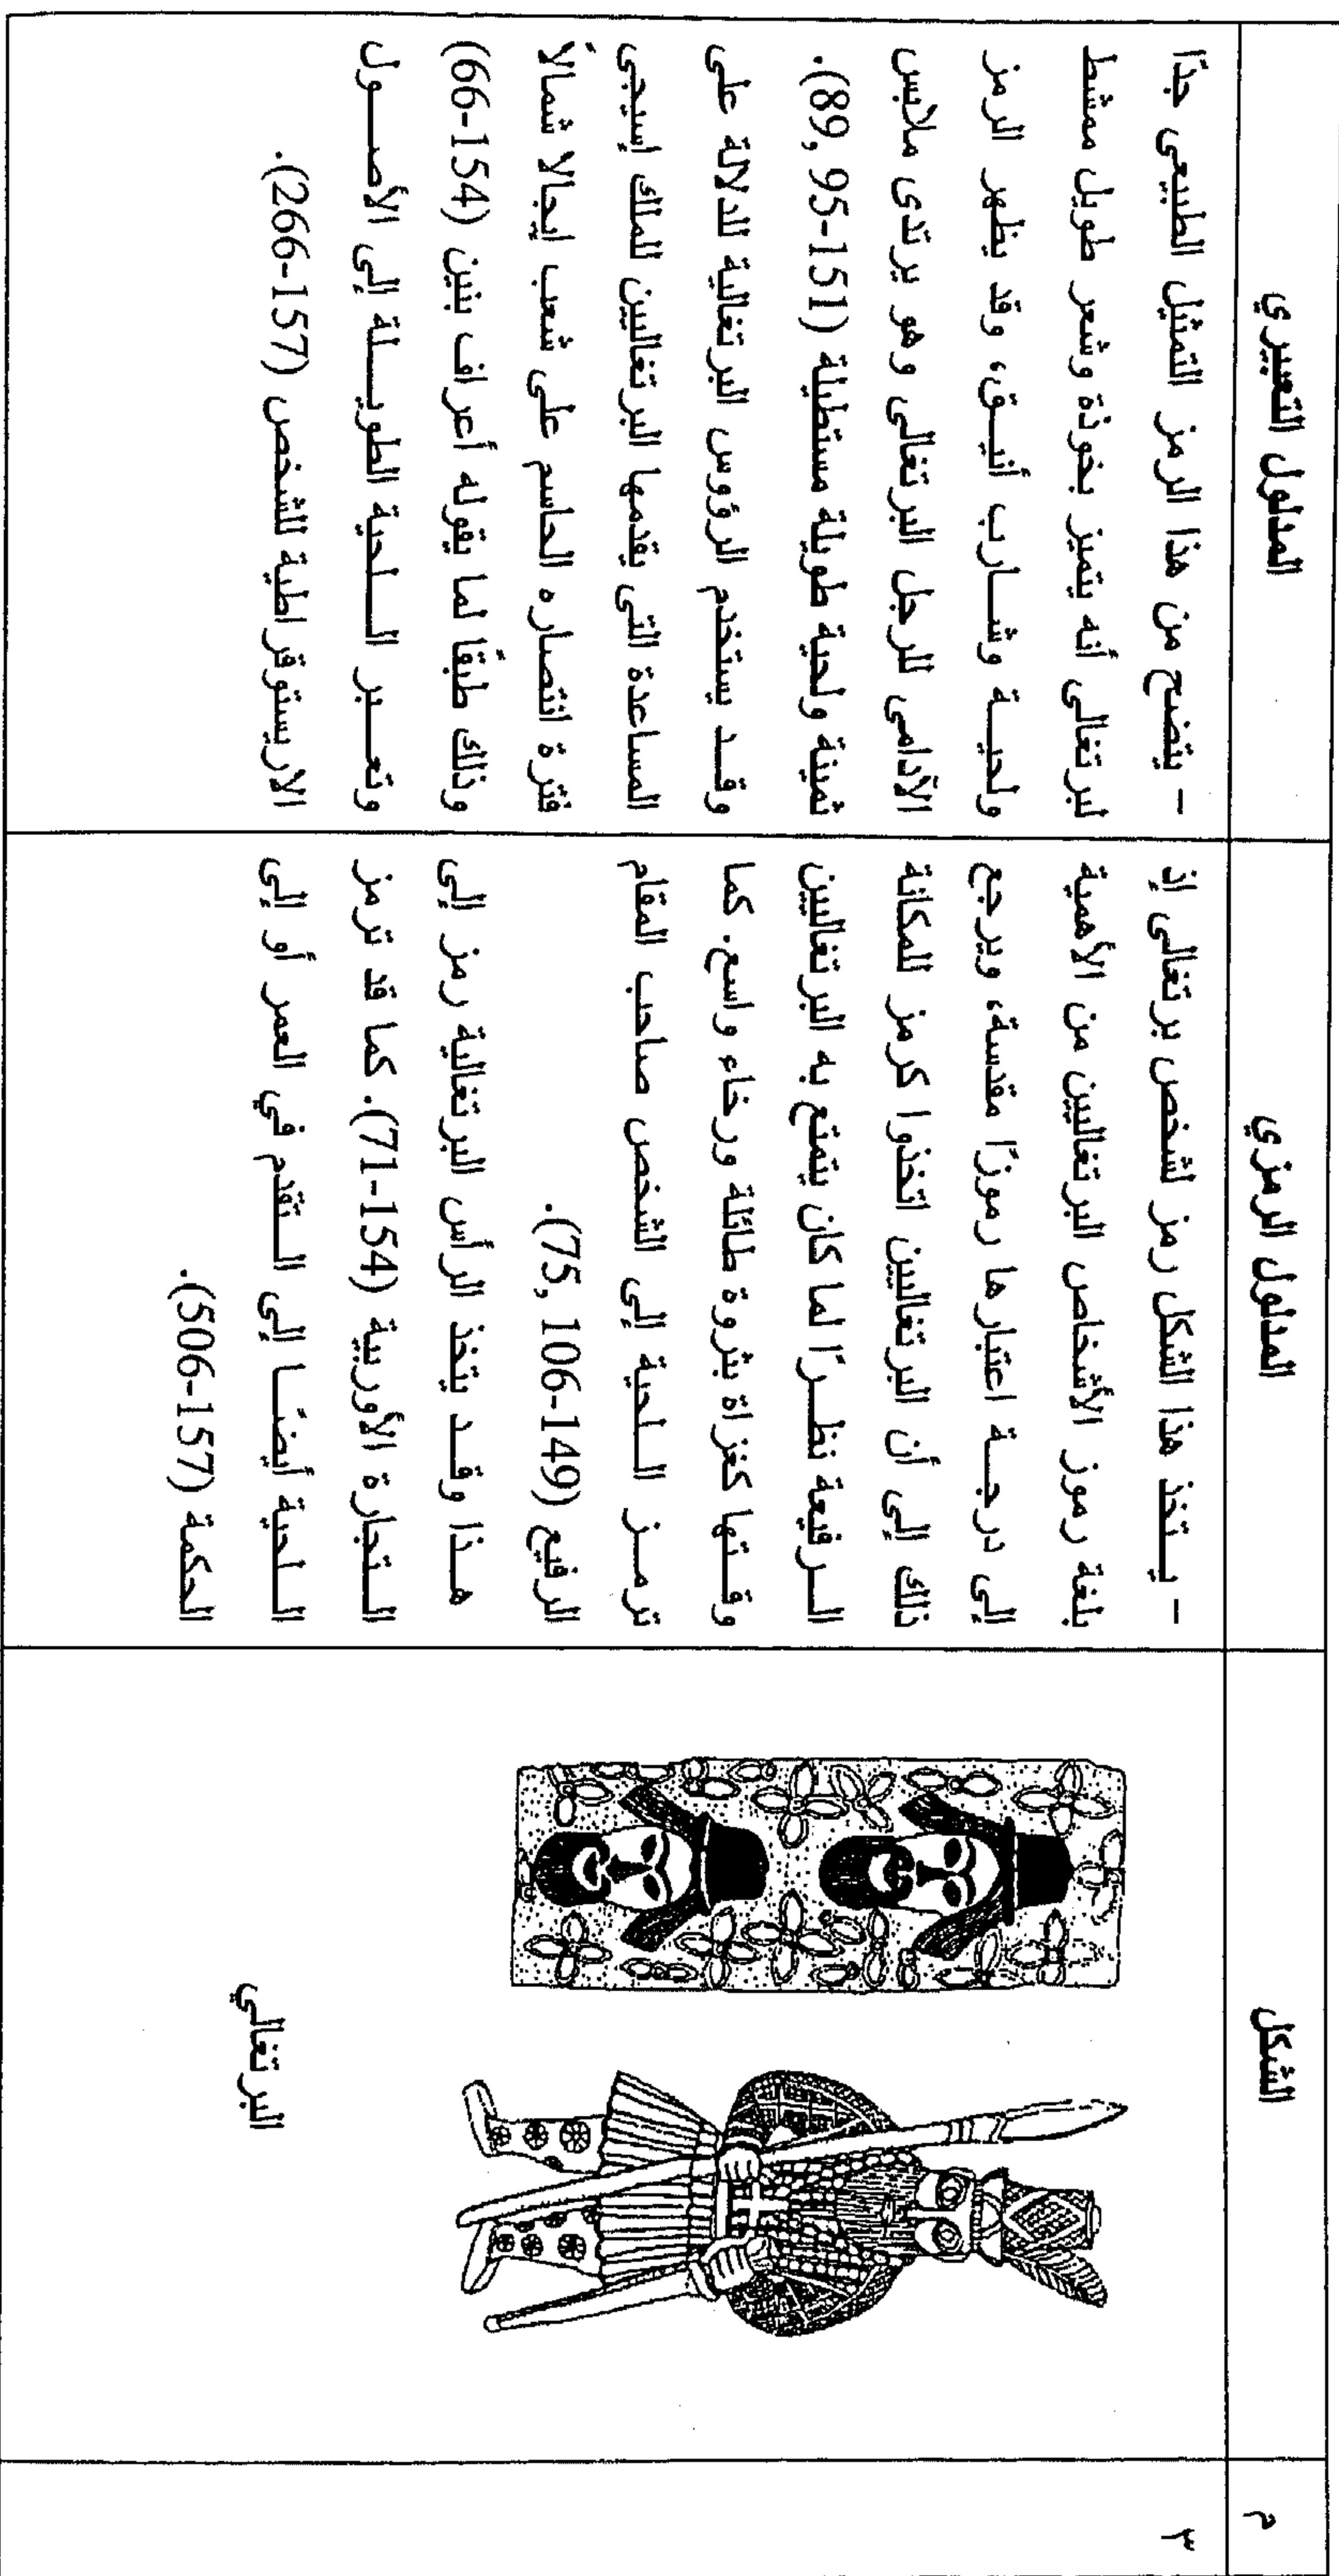 م
الشكل
المدلول الرمزي
المدلول التعبيري
٣
البرتغالي
- يتخذ هذا الشكل رمز لشخص برتغالى إذ
بلغة رموز الأشخاص البرتغاليين من الأهمية
إلى درجة اعتبارها رموزًا مقدسة، ويرجع
ذلك إلى أن البرتغاليين اتخذوا كرمز للمكانة
الرفيعة نظرًا لما كان يتمتع به البرتغاليين
وقتها كغزاة بثروة طائلة ورخاء واسع. كما
ترمز اللحية إلى الشخص صاحب المقام
الرفيع (149-106 ,75).
هذا وقد يتخذ الرأس البرتغالية رمز إلى
التجارة الأوربية (154-71). كما قد ترمز
اللحية أيضًا إلى التقدم في العمر أو إلى
الحكمة (157-506).
- يتضح من هذا الرمز التمثيل الطبيعى جدًا
لبرتغالى أنه يتميز بخوذة وشعر طويل ممشط
ولحية وشارب أنيق، وقد يظهر الرمز
الآدامى للرجل البرتغالى وهو يرتدى ملابس
ثمينة ولحية طويلة مستطيلة (151-95 ,89).
وقد يستخدم الرؤوس البرتغالية للدلالة على
المساعدة التى يقدمها البرتغاليين للملك إسيجى
فترة انتصاره الحاسم على شعب ايجالا شمالاً
وذلك طبقًا لما يقوله أعراف بنين (154-66)
وتعبر اللحية الطويلة إلى الأصول
الاريستوقراطية للشخص (157-266).